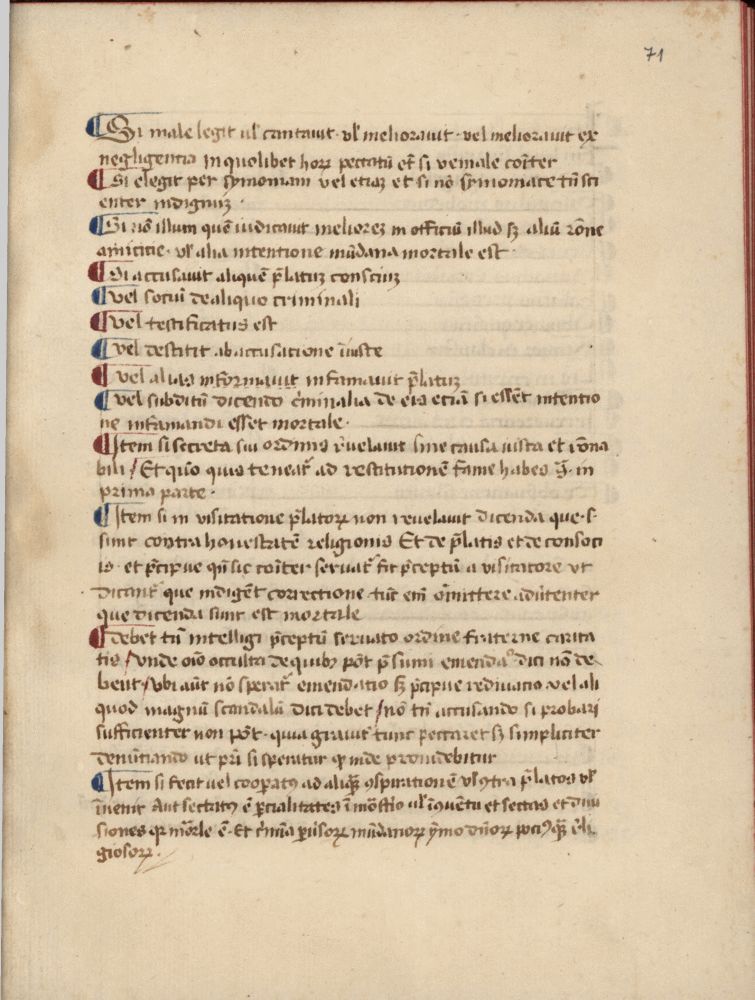 71
Si male legit ul' cantauit · ul' meliorauit · uel meliorauit ex
negligentia in quolibet hor peccatū et si ve male cōiter
Si elegit per symoniam vel etiaz et si nō symoniace tn̄ sci
enter indignuz ·
Si nō illum quē iudicauit meliorez in officiū illud sz aliū rōne
amicicie · ul' alia intentione mūdana mortale est ·
Si accusauit aliquē p̄latuz consciuz
vel sociū de aliquo criminali
vel testificatus est
vel destitit ab accusatione īiuste
vel alias informauit infamauit p̄latuz
vel subditū dicendo c̄minalia de eis eciā si esset intentio
ne infamandi esset mortale ·
Item si secreta sui ordinis r̄uelauit sine causa iusta et rōna
bili / Et quō quis teneat̄ ad restitutionē fame habes ḡ · in
prima parte ·
Item si in visitatione p̄lator̄ non reuelauit dicenda que · s ·
sunt contra honestatē religionis Et de p̄latis et de consoci
is · et p̄cipue qn̄ sic cōiter seruat̄ fit p̄ceptū a visitatore vt
dicant̄ que indigēt correctione · tūc eni omittere aduertenter
que dicenda sunt est mortale
debet tn̄ intelligi p̄ceptū seruato ordine fraterne carita
tis / vnde oīo occulta de quibz pōt p̄sumi emendaᵒ dici nō de
bent / vbi aūt nō sperat̄ emendatio sz p̄cipue vel ali
quod magnū scandalū dici debet / nō tn̄ accusando si probari
sufficienter non pōt · quia grauit̄ tunc peccaret sz simpliciter
denūtiando ut pr̄i si speratur q inde prouidebitur
Item si fecit uel cooperatꝰ ad aliqū ꝯspirationē vl' ꝯtra p̄latos vl'
īuenit Aut sectatꝰ ē p̄cialitates ī mōst̄io ul' ī ꝯuentu et sectas et diui
siones q mōrle ē · Et mūdanor ymo dn̄or pociꝰ qz r̄li
giosor ·